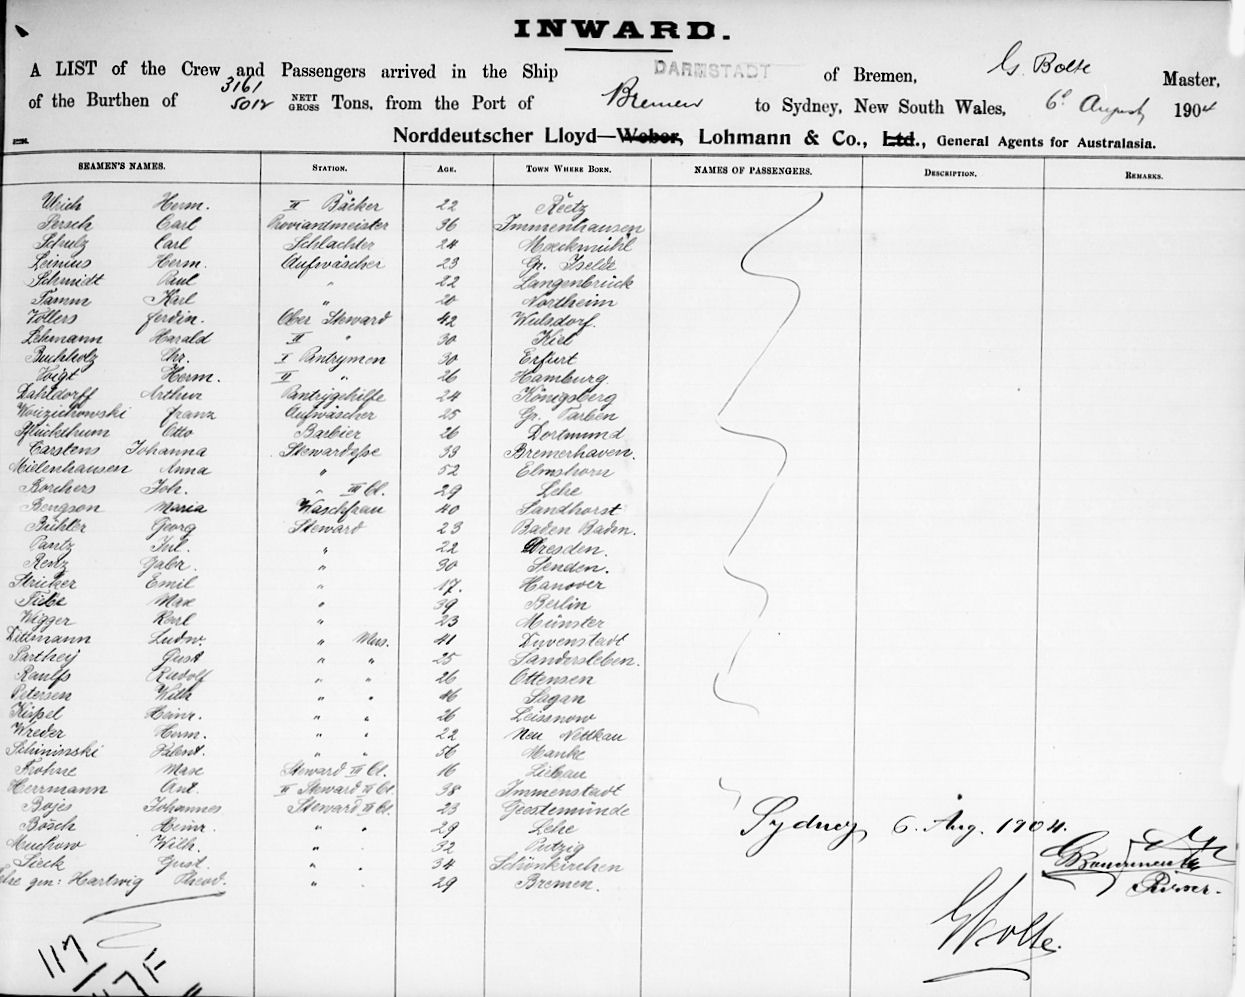 INWARD.
A LIST of the Crew and Passengers arrived in the Ship DARMSTADT of Bremen, G. Bolte Master,
of the Burthen of 3161 5012 NETT GROSS Tons, from the Port of Bremen to Sydney, New South Wales, 6th August 1904
Norddeutscher Lloyd—Weber, Lohmann & Co., Ltd., General Agents for Australasia.
SEAMEN'S NAMES. STATION. AGE. TOWN WHERE BORN. NAMES OF PASSENGERS. DESCRIPTION. REMARKS.
Ulrich Herm. II Bäcker 22 Reetz
Persch Carl Proviantmeister 36 Immenhausen
Schulz Carl Schlachter 24 Moeckmühl
Leinius Herm. Aufwäscher 23 Gr. Ilselde
Schmidt Paul " 22 Langenbrück
Tamm Karl " 20 Northeim
Vollers Ferdin. Ober Steward 42 Wulsdorf.
Lehmann Harald II " 30 Kiel
Buchholz Chr. I Pantrymen 30 Erfurt
Voigt Herm. II " 26 Hamburg.
Dahldorff Arthur Pantrygehilfe 24 Königsberg
Franz Aufwäscher 25 Gr. Tarben
Pflückthum Otto Barbier 26 Dortmund
Carstens Johanna Stewardeße 33 Bremerhaven.
Mielenhausen Anna " 52 Elmshorn
Borchers Joh. " III Cl. 29 Lehe
Bengson Maria Waschfrau 40 Sandhorst
Bühler Georg Steward 23 Baden Baden.
Pantz Jul. " 22 Dresden.
Renz Gabr. " 30 Senden.
Stricker Emil " 17. Hanover
Max " 39 Berlin
Wigger Karl " 23 Münster
Dittmann Ludw. " Mus. 41 Duvenstadt
Parthey Gust " " 25 Sandersleben.
Raulfs Rudolf " " 26 Ottensen
Petersen Wilh " " 46 Sagan
Kißel Heinr. " " 26 Leissnow
Wreder Herm. " " 22 Neu Nettkau
Schininski Valent. " " 56 Manke
Frohne Max Steward III Cl. 16 Liebau
Herrmann Ant. II Steward III Cl. 38 Immenstadt
Bojes Johannes Steward III Cl. 23 Geestemünde
Bösch Heinr. " " 29 Lehe
Muchow Wilh. " . 32 Putzig
Sieck Gust. " . 34 Schönkirchen
gen: Hartwig Theod. " . 29 Bremen.
Sydney, 6. Aug. 1904.
Purser.
G Bolte.
117